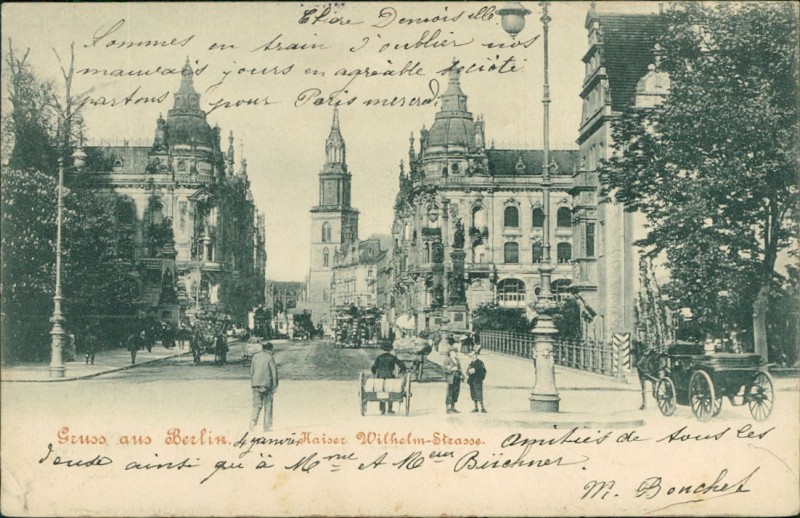 Chère Demoiselle
Sommes en train d'oublier nos
mauvais jours en agréable société
partons pour Paris mercredi
Gruss aus Berlin. 4 janvier Kaiser Wilhelm-Strasse.
Amitiés de tous les
deux ainsi qu'à Mme et Meur Büchner.
M. Bonchet